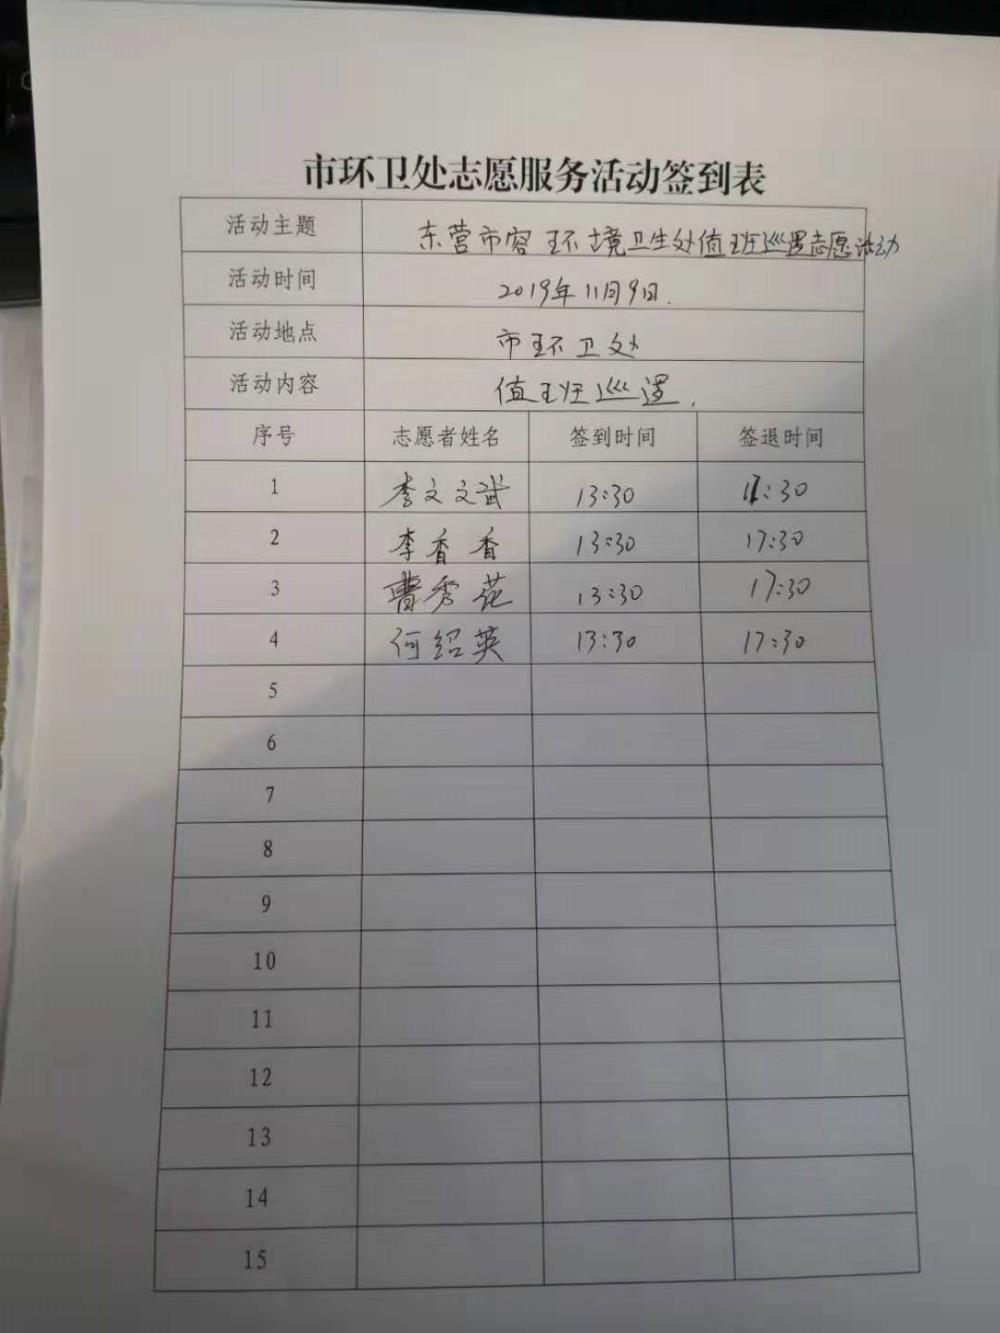 市环卫处志愿服务活动签到表
活动主题 东营市容环境卫生处值班巡逻志愿活动
活动时间 2019年11月9日.
活动地点 市环卫处
活动内容 值班巡逻.
序号 志愿者姓名 签到时间 签退时间
1 李文文斌 13:30 :30
2 李香香 13:30 17:30
3 曹秀花 13:30 17:30
4 何绍英 13:30 17:30
5
6
7
8
9
10
11
12
13
14
15